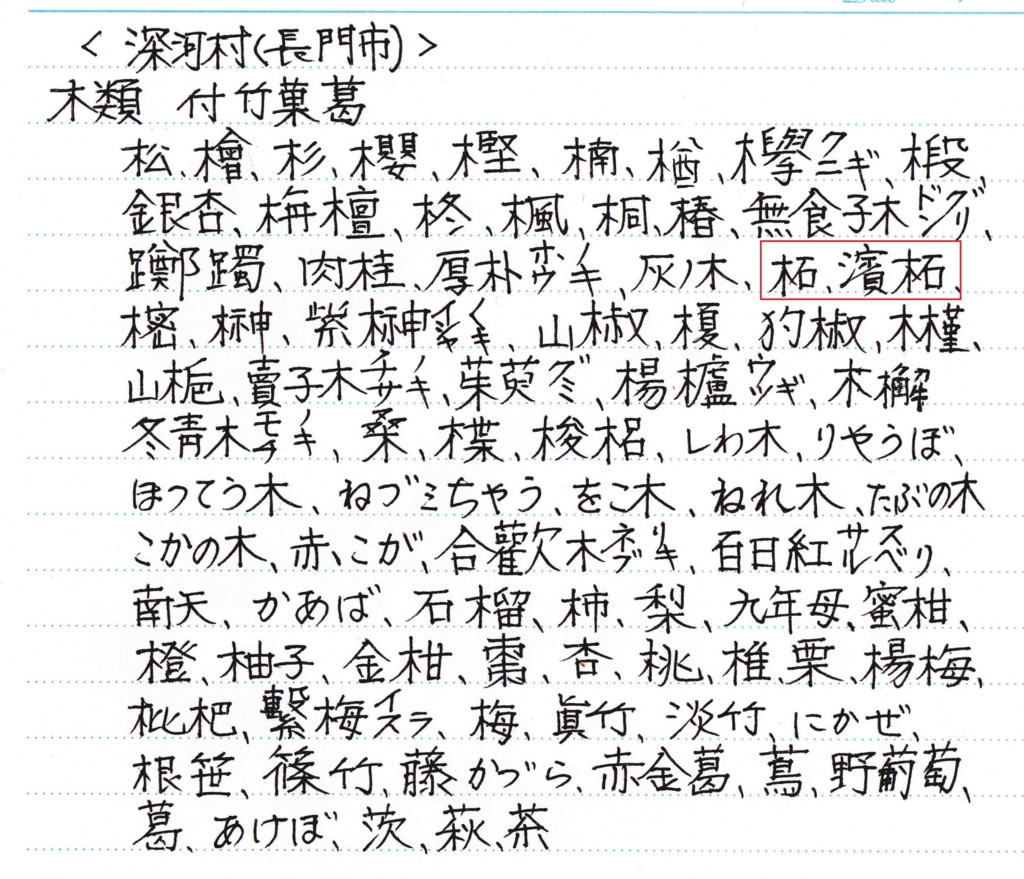 < 深河村(長門市) >
木類 付竹菓葛
松、檜、杉、櫻、樫、楠、楢、欅クニギ、椴、
銀杏、栴檀、柊、楓、桐、椿、無食子木ドングリ、
躑躅、肉桂、厚朴ホウノキ、灰ノ木、柘、濱柘、
樒、榊、紫榊、山椒、榎、犳椒、木槿、
山梔、賣子木チサノキ、茱萸グミ、楊櫨ウツギ、木檞
冬青木モチノキ、桑、楪、梭梠、しわ木、りやうぼ、
ほつてう木、ねづミちやう、をこ木、ねれ木、たぶの木
こかの木、赤こが、合歡木ネブリキ、百日紅サルスベリ、
南天、かあば、石榴、柿、梨、九年母、蜜柑、
橙、柚子、金柑、棗、杏、桃、椎、栗、楊梅、
枇杷、繋梅イスラ、梅、眞竹、淡竹、にかぜ、
根笹、篠竹、藤かづら、赤金葛、蔦、野葡萄、
葛、あけぼ、茨、萩、茶